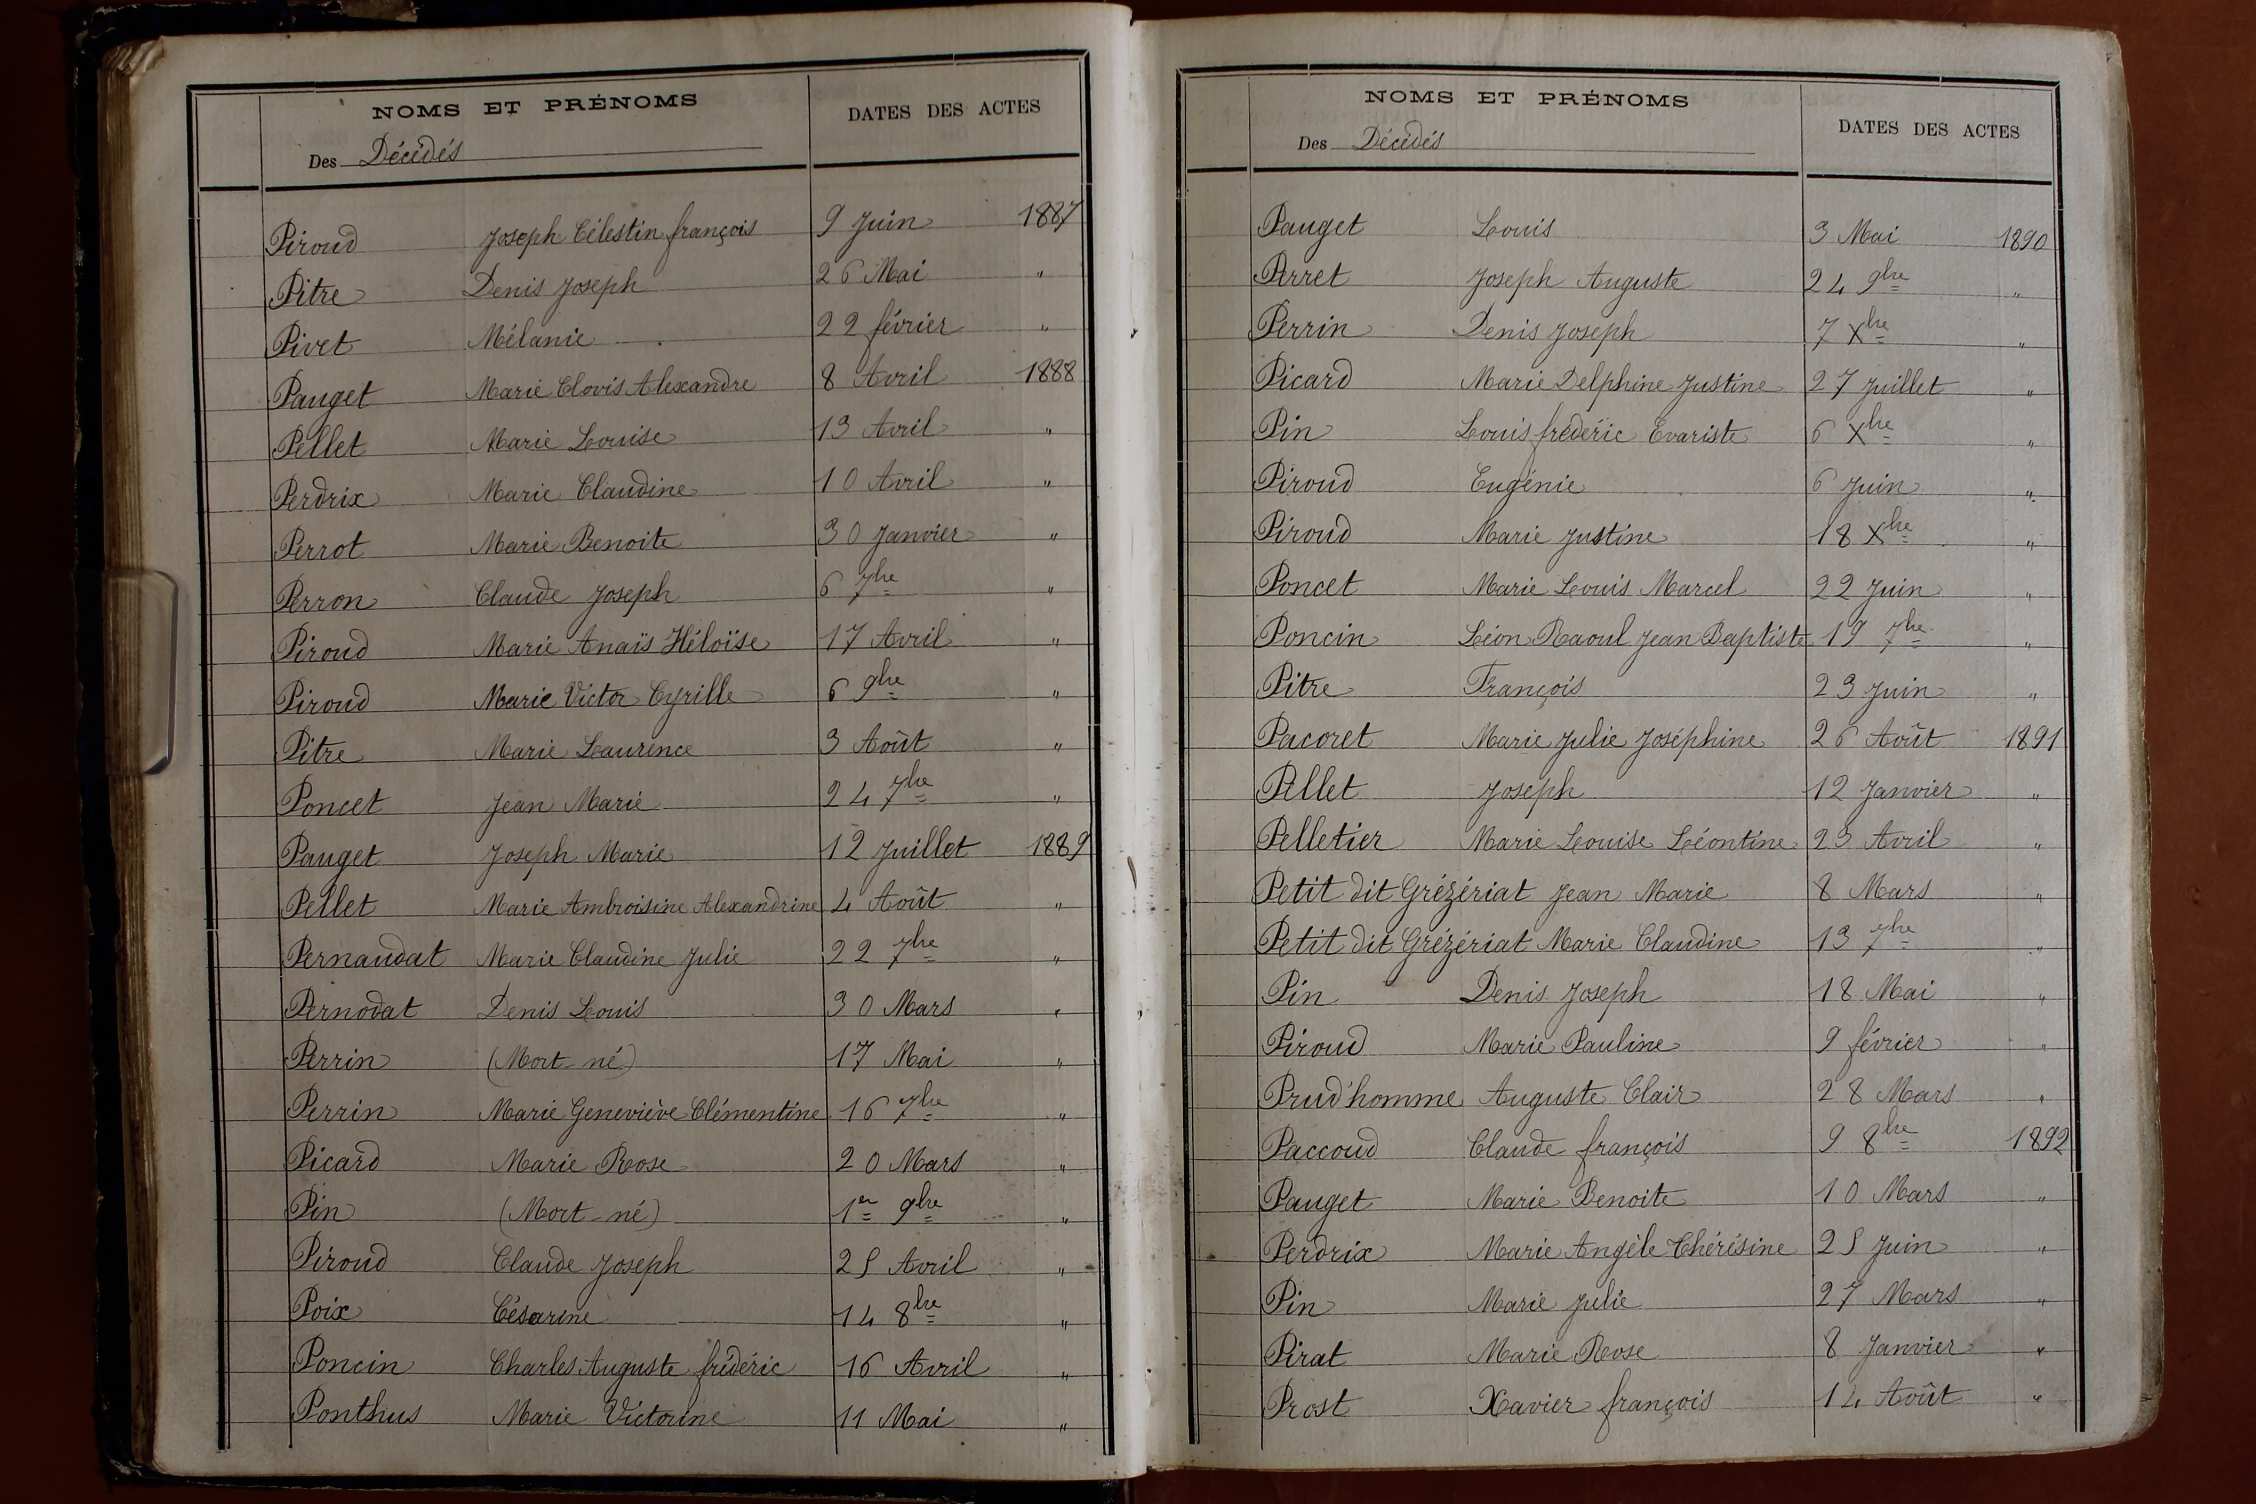 NOMS ET PRÉNOMS DATES DES ACTES
Des Décédés
Piroud Joseph Célestin françois 9 Juin 1887
Pitre Denis Joseph 26 Mai "
Pivet Mélanie 22 février "
Pauget Marie Clovis Alexandre 8 Avril 1888
Pellet Marie Louise 13 Avril "
Perdrix Marie Claudine 10 Avril "
Perrot Marie Benoite 30 Janvier "
Perron Claude Joseph 6 7bre "
Piroud Marie Anaïs Héloïse 17 Avril "
Piroud Marie Victor Cyrille 6 9bre "
Pitre Marie Laurence 3 Août "
Poncet Jean Marie 24 7bre "
Pauget Joseph Marie 12 Juillet 1889
Pellet Marie Ambroisine Alexandrine 4 Août "
Pernaudat Marie Claudine Julie 22 7bre "
Pernodat Denis Louis 30 Mars "
Perrin (Mort-né) 17 Mai "
Perrin Marie Geneviève Clémentine 16 7bre "
Picard Marie Rose 20 Mars "
Pin (Mort-né) 1er 9bre "
Piroud Claude Joseph 25 Avril "
Poix Césarine 14 8bre "
Poncin Charles Auguste frédéric 16 Avril "
Ponthus Marie Victorine 11 Mai "
NOMS ET PRÉNOMS DATES DES ACTES
Des Décédés
Pauget Louis 3 Mai 1890
Perret Joseph Auguste 24 9bre "
Perrin Denis Joseph 7 Xbre "
Picard Marie Delphine Justine 27 Juillet "
Pin Louis frédéric Evariste 6 Xbre "
Piroud Eugénie 6 Juin "
Piroud Marie Justine 18 Xbre "
Poncet Marie Louis Marcel 22 Juin "
Poncin Léon Raoul Jean Baptiste 19 7bre "
Pitre François 23 Juin "
Pacoret Marie Julie Joséphine 26 Août 1891
Pellet Joseph 12 Janvier "
Pelletier Marie Louise Léontine 23 Avril "
Petit dit Grézériat Jean Marie 8 Mars "
Petit dit Grézériat Marie Claudine 13 7bre "
Pin Denis Joseph 18 Mai "
Piroud Marie Pauline 9 février "
Prud'homme Auguste Clair 28 Mars "
Paccoud Claude françois 9 8bre 1892
Pauget Marie Benoite 10 Mars "
Perdrix Marie Angèle Thérésine 25 Juin "
Pin Marie Julie 27 Mars "
Pirat Marie Rose 8 Janvier "
Prost Xavier françois 14 Août "